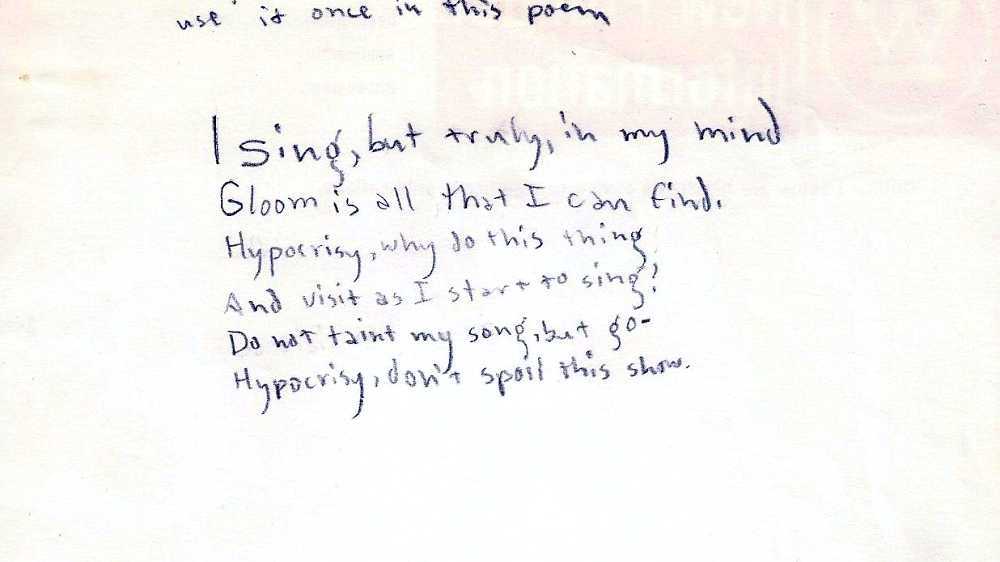 use it once in this poem
I sing, but truly, in my mind
Gloom is all that I can find.
Hypocrisy, why do this thing
And visit as I start to sing?
Do not taint my song, but go-
Hypocrisy, don't spoil this show.